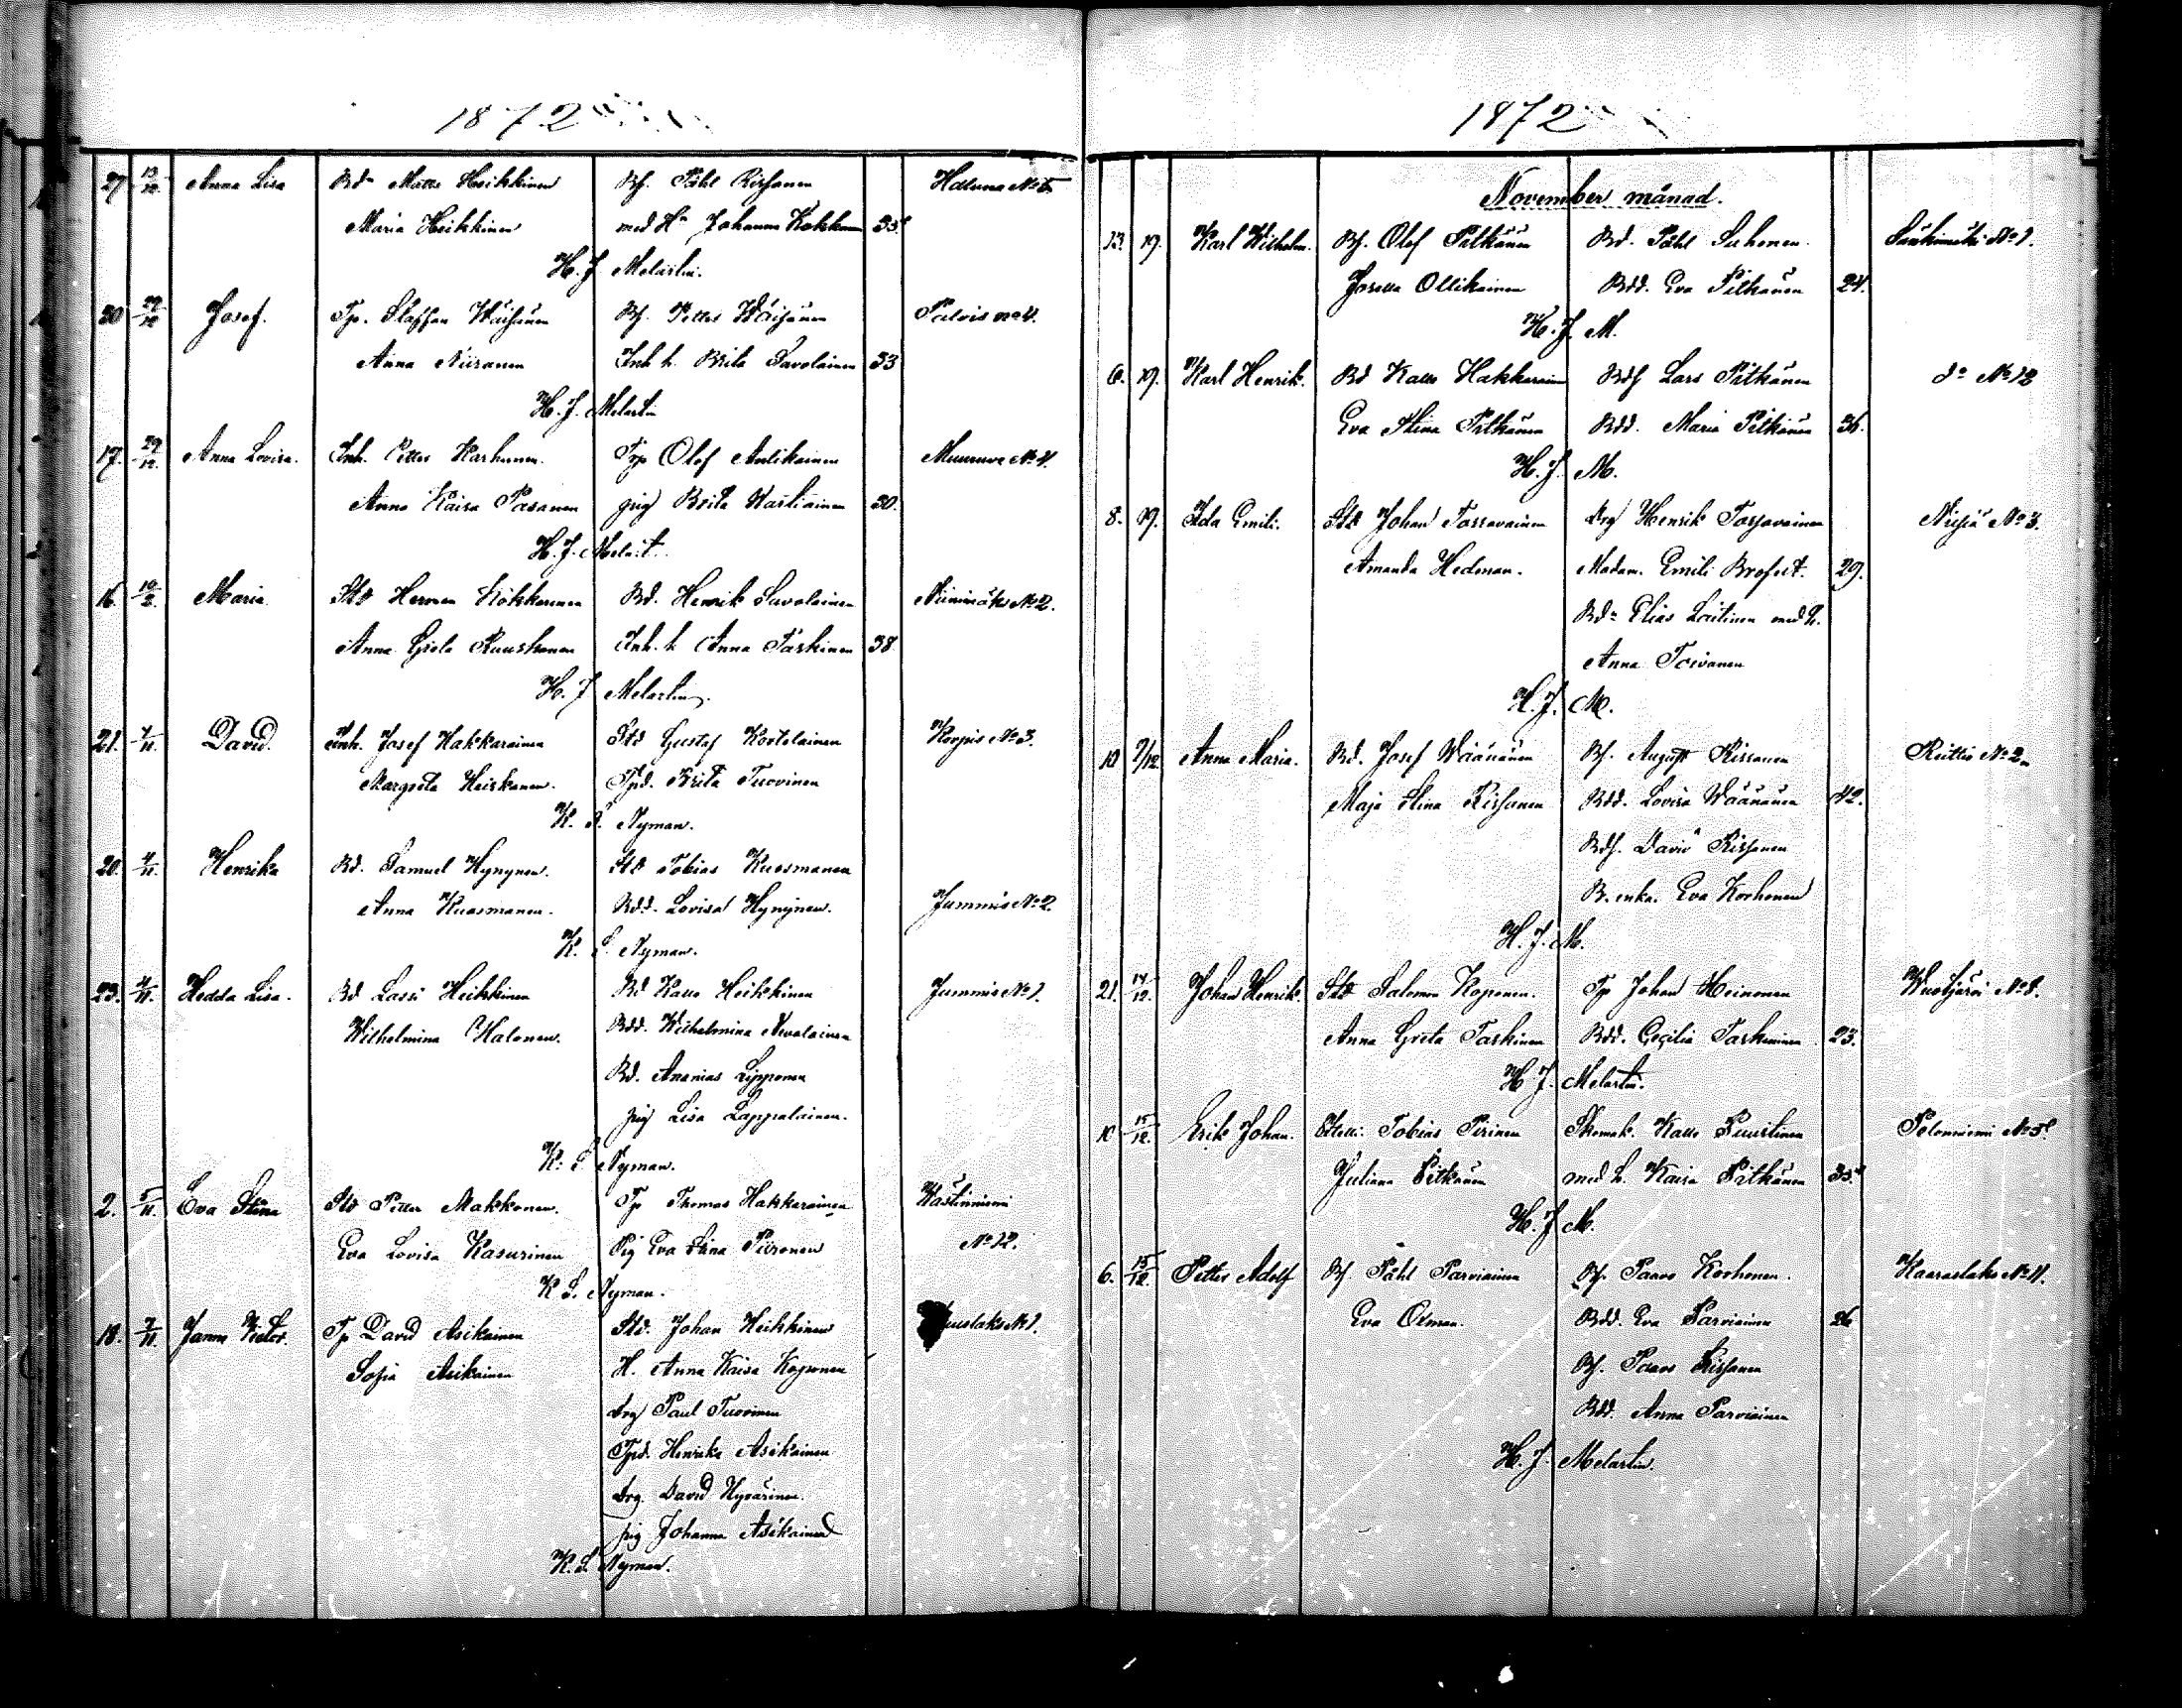 1872
27 13/12 Anna Lisa Bdn Matts Heikkinen Bf. Påhl Rissanen Haluna No 5
Maria Heikkinen med Hu Johanna Kokkonen 35
H. J. Melartin.
20 29/12 Josef. Tp. Staffan Wäisänen Bf. Petter Wäisänen Palvis No 4.
Anna Niiranen Inh h. Brita Savolainen 33
H. J. Melartin
17. 29/12 Anna Lovisa. Inh. Petter Karhunen. Trp Olof Antikainen Muuruve No 4.
Anna Kaisa Pasanen pig Brita Wartiainen 30.
H. J. Melart.
16. 10/2. Maria Std Herman Kokkonen Bd. Henrik Savolainen Niinimäki No 2.
Anna Greta Ruuskanen Inh. h Anna Taskinen 38
H. J Melartin.
21. 4/11. David. Inh. Josef Hakkarainen Std Gustaf Kortelainen Korpis No 3.
Margreta Heiskanen. Tpd. Brita Tuovinen
K. S. Nyman.
20. 4/11. Henrika Bd. Samuel Hynynen. Std Tobias Kuosmanen
Anna Kuosmanen. Bdd. Lovisa Hynynen. Jummis No 2.
K. S. Nyman.
23. 4/11. Hedda Lisa. Bd Lassi Heikkinen Bd Kalle Heikkinen Jummis No 1.
Wilhelmina Halonen. Bdd. Wilhelmina Awolainen
Bd. Ananias Lipponen
pig Lisa Lappalainen.
K. S. Nyman.
2. 5/11. Eva Stina Std Petter Makkonen. Tp Thomas Hakkarainen Wästinniemi
Eva Lovisa Kasurinen Pig Eva Stina Piironen No 12.
K S. Nyman.
18. 7/11. Janne Victor. Tp David Asikainen Std. Johan Heikkinen Juuslaks No 1.
Sofia Asikainen H. Anna Kaisa Koponen
drg Paul Tuovinen
Tpd. Henrika Asikainen
drg. David Hyvärinen.
pig Johanna Asikainen
K. S. Nyman.
1872
November månad.
13. 19. Karl Wilhelm. Bf. Olof Pitkänen Bd. Påhl Suhonen. Sänkimäki No 1.
Josefa Ollikainen Bdd. Eva Pitkänen 24.
H. J. M.
6. 19. Karl Henrik. Bd Kalle Hakkarainen Bdf Lars Pitkänen do No 12
Eva Stina Pitkänen Bdd. Maria Pitkänen 36.
H. J. M.
8. 19. Ida Emili. Std Johan Tossavainen drg Henrik Tossavainen Nilsiä No 3.
Amanda Hedman. Madam. Emili Brofeet. 29.
Bdn Elias Laitinen med h.
Anna Toivanen
H. J. M.
10 7/12. Anna Maria. Bd. Josef Wäänänen Bf. August Rissanen Reittiö No 2
Maja Stina Rissanen Bdd. Lovisa Wäänänen 42.
Bdf. David Rissanen
B. enka. Eva Korhonen
H. J. M.
21. 14/12. Johan Henrik. Std Salomon Koponen. Tp Johan Heinonen Wuotjärvi No 8.
Anna Greta Taskinen Bdd. Cecilia Taskinen 23.
H J. Melartin.
10 15/12. Erik Johan. Tobias Pirinen Skomak. Kalle Puustinen Pelonniemi No 5.
Juliana Pitkänen med h. Kaisa Pitkänen 35
H. J M.
6. 15/12. Petter Adolf Bf. Påhl Parviainen Bf. Paavo Korhonen. Kaaraslaks No 11.
Eva Osman. Bdd. Eva Parviainen 26
Bf. Paavo Rissanen
Bdd. Anna Parviainen
H. J. Melartin.